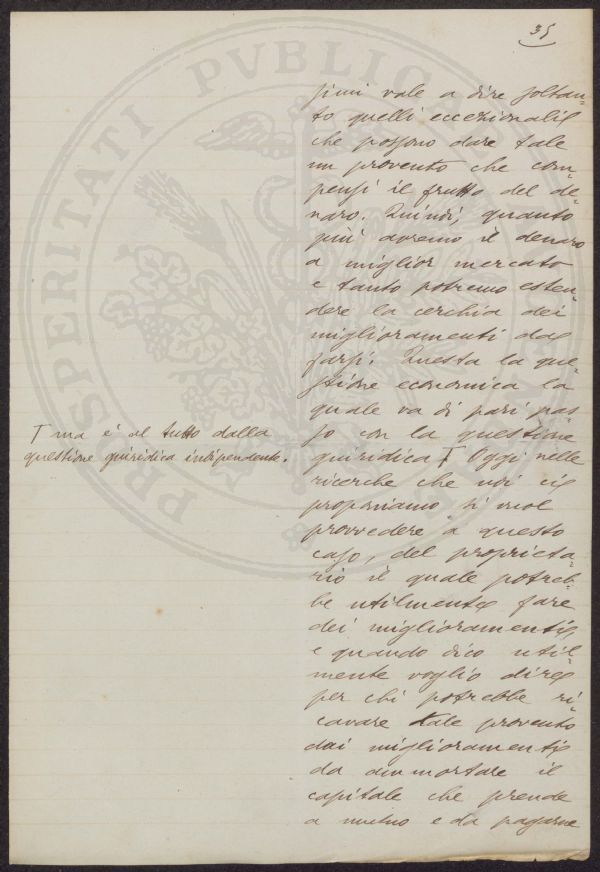 35
simi vale a dire soltan-
to quelli eccezionali
che possono dare tale
un provento che com-
pensi il frutto del de-
naro. Quindi, quanto
più avremo il denaro
a miglior mercato
e tanto potremo esten-
dere la cerchia dei
miglioramenti da
farsi. Questa la que-
stione economica la
quale va di pari pas-
so con la questione
giuridica T Oggi nelle
T ma è al tutto dalla
questione giuridica indipendente.
ricerche che noi ci
proponiamo si vuol
provvedere a questo
caso, del proprieta-
rio il quale potreb-
be utilmente fare
dei miglioramenti,
e quando dico util-
mente voglio dire
per chi potrebbe ri-
cavare tale provento
dai miglioramenti
da ammortare il
capitale che prende
a mutuo e da pagarne
PROSPERITATI PVBLICAE